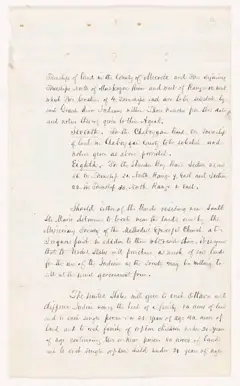 Townships of land in the County of Mecosta and two adjoining
Townships North of Muskegon River and west of Range
what two Counties of 4 Townships each are to be selected by
said Grand River Indians within Three months from this date
and notice thereof given to their Agent.
Seventh. To the Cheboygan Band, one Township
of land in Cheboygan County to be selected and
notice given as above provided.
Eighth. To the Thunder Bay Band Section
in Township 30 North Range 7 East and Section
22 in Township 30 North Range 8 East.
Should either of the Bands residing near Sault
Ste. Marie determine to locate near the lands owned by the
Missionary Society of the Methodist Episcopal Church at
Iroquois Point in addition to those
that the United States will purchase as much of said lands
for the use of the Indians as the Society may be willing to
sell at the usual government price.
The United States will give to each Ottawa and
Chippewa Indian being the head of a family 80 acres of land
and to each single person over 21 years of age 40 acres of
land and to each family of orphan children under 21 years
of age containing two or more persons 80 acres of land
and to each single orphan child under 21 years of age